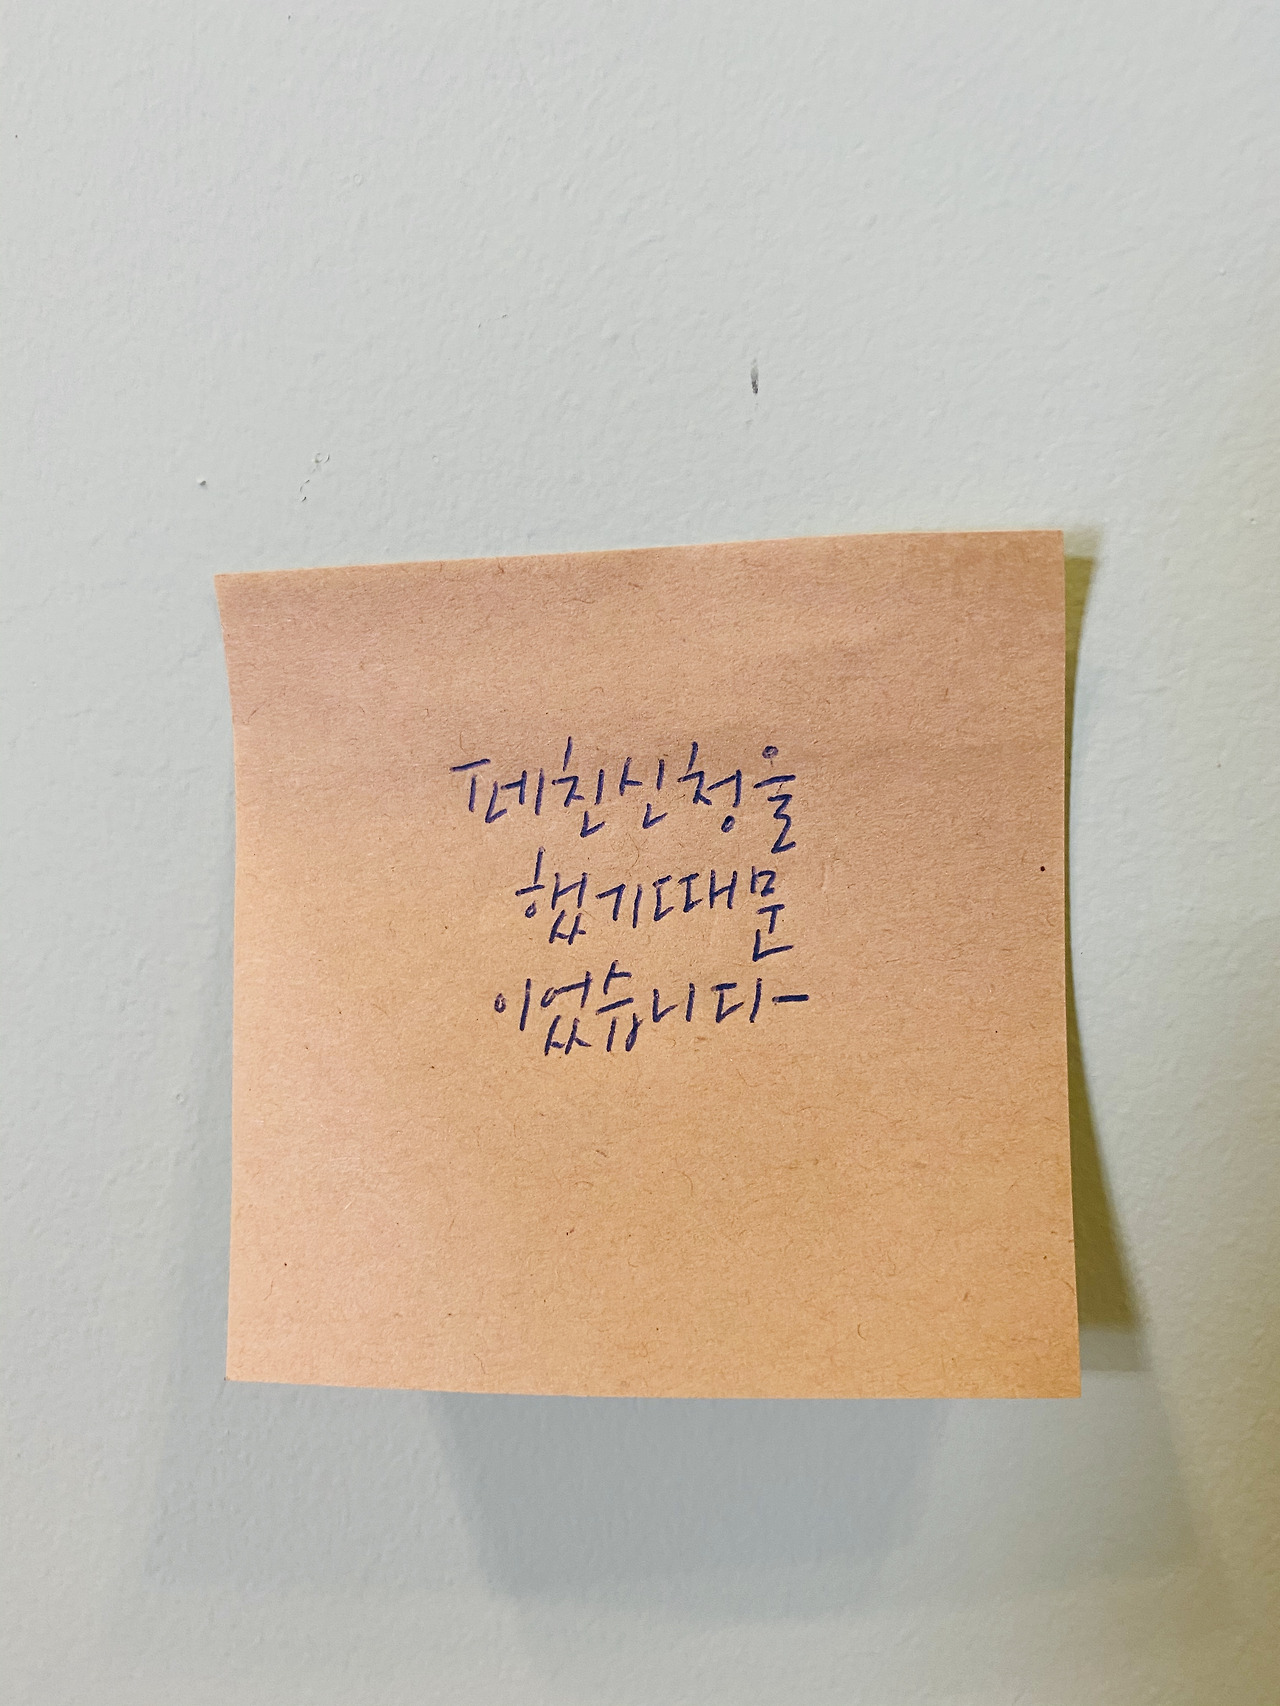 페친신청을
했기때문
이었습니다